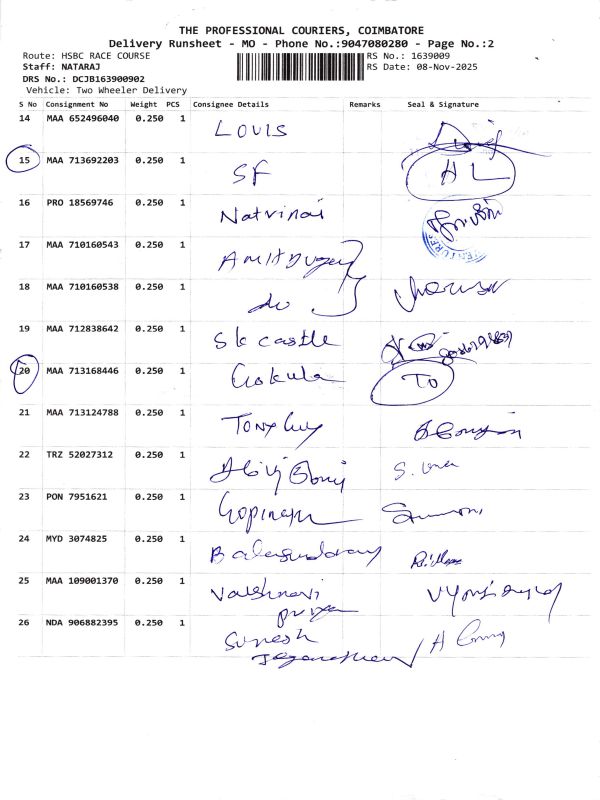 THE PROFESSIONAL COURIERS, COIMBATORE
Delivery Runsheet - MO - Phone No.:9047080280 - Page No.:2
Route: HSBC RACE COURSE RS No.: 1639009
Staff: NATARAJ RS Date: 08-Nov-2025
DRS No.: DCJB163900902
Vehicle: Two Wheeler Delivery
S No Consignment No Weight PCS Consignee Details Remarks Seal & Signature
14 MAA 652496040 0.250 1 LOUIS
15 MAA 713692203 0.250 1 SF HL
16 PRO 18569746 0.250 1
17 MAA 710160543 0.250 1
18 MAA 710160538 0.250 1 do
19 MAA 712838642 0.250 1 Sk castle
20 MAA 713168446 0.250 1 Gokula TO
21 MAA 713124788 0.250 1 Tony
22 TRZ 52027312 0.250 1
23 PON 7951621 0.250 1 Gopinath
24 MYD 3074825 0.250 1
25 MAA 109001370 0.250 1 Vaishnavi
priya
26 NDA 906882395 0.250 1 Suresh